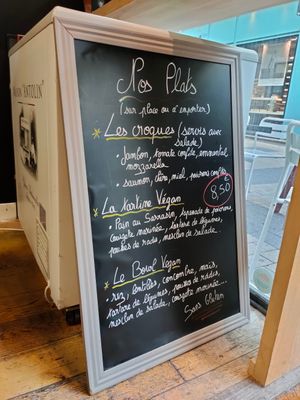 Nos Plats
(sur place ou à emporter)
Les croques (servis avec
salade)
• Jambon, tomate confite, emmental
mozzarella
• saumon, chèvre, miel, poivrons confits
8,50
La tartine Végan
• Pain au Sarrasin, tapenade de poivrons,
courgette marinée, tartare de légumes,
pousses de radis, mesclun de salade
Le Bowl Vegan
• riz, lentilles, concombre, maïs,
tartare de légumes, pousses de radis,
mesclun de salade, courgette marinée...
Sans Gluten